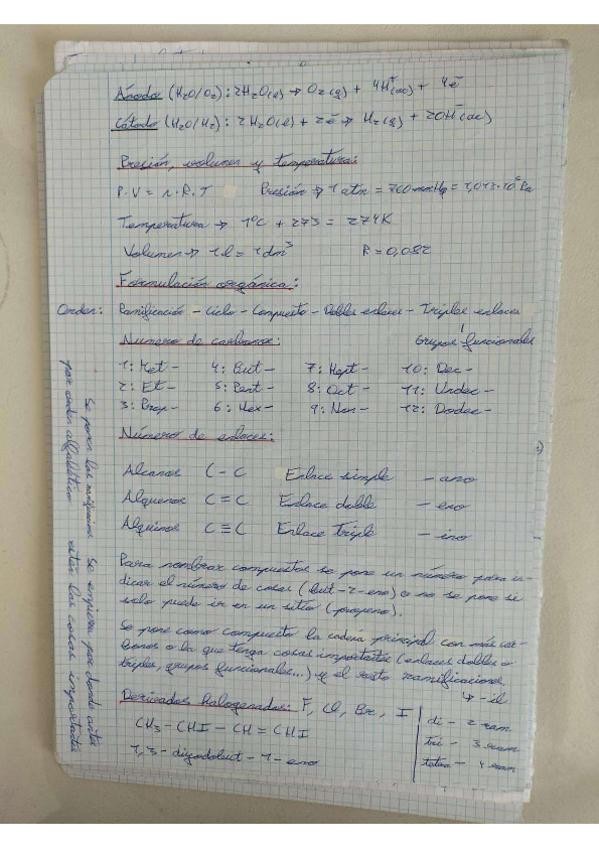 Ánodo (H₂O/O₂): 2H₂O(l) → O₂(g) + 4H⁺(ac) + 4e⁻
Cátodo (H₂O/H₂): 2H₂O(l) + 2e⁻ → H₂(g) + 2OH⁻(ac)
Presión, volumen y temperatura:
P·V = n·R·T Presión → 1 atm = 760 mmHg = 1,013·10⁵ Pa
Temperatura → 1ºC + 273 = 274K
Volumen → 1l = 1dm³ R = 0,082
Formulación orgánica:
Orden: Ramificación - Ciclo - Compuesto - Dobles enlaces - Triples enlaces
Grupos funcionales
Número de carbonos:
1: Met- 4: But- 7: Hept- 10: Dec-
2: Et- 5: Pent- 8: Oct- 11: Undec-
3: Prop- 6: Hex- 9: Non- 12: Dodec-
Número de enlaces:
Alcanos C-C Enlace simple -ano
Alquenos C=C Enlace doble -eno
Alquinos C≡C Enlace triple -ino
Para nombrar compuestos se pone un número para in-
dicar el número de cosas (but-2-eno) o no se pone si
solo puede ir en un sitio (propeno).
Se pone como compuesto la cadena principal con más car-
bonos o la que tenga cosas importantes (enlaces dobles o
triples, grupos funcionales...) y el resto ramificaciones
↳ -il
Derivados halogenados: F, Cl, Br, I
CH₃-CHI-CH=CHI
1,3-diyodobut-1-eno
di- 2 ram
tri- 3 ram
tetra- 4 ram
Se ponen las Se empieza por donde estén
por orden alfabético estén las cosas importantes